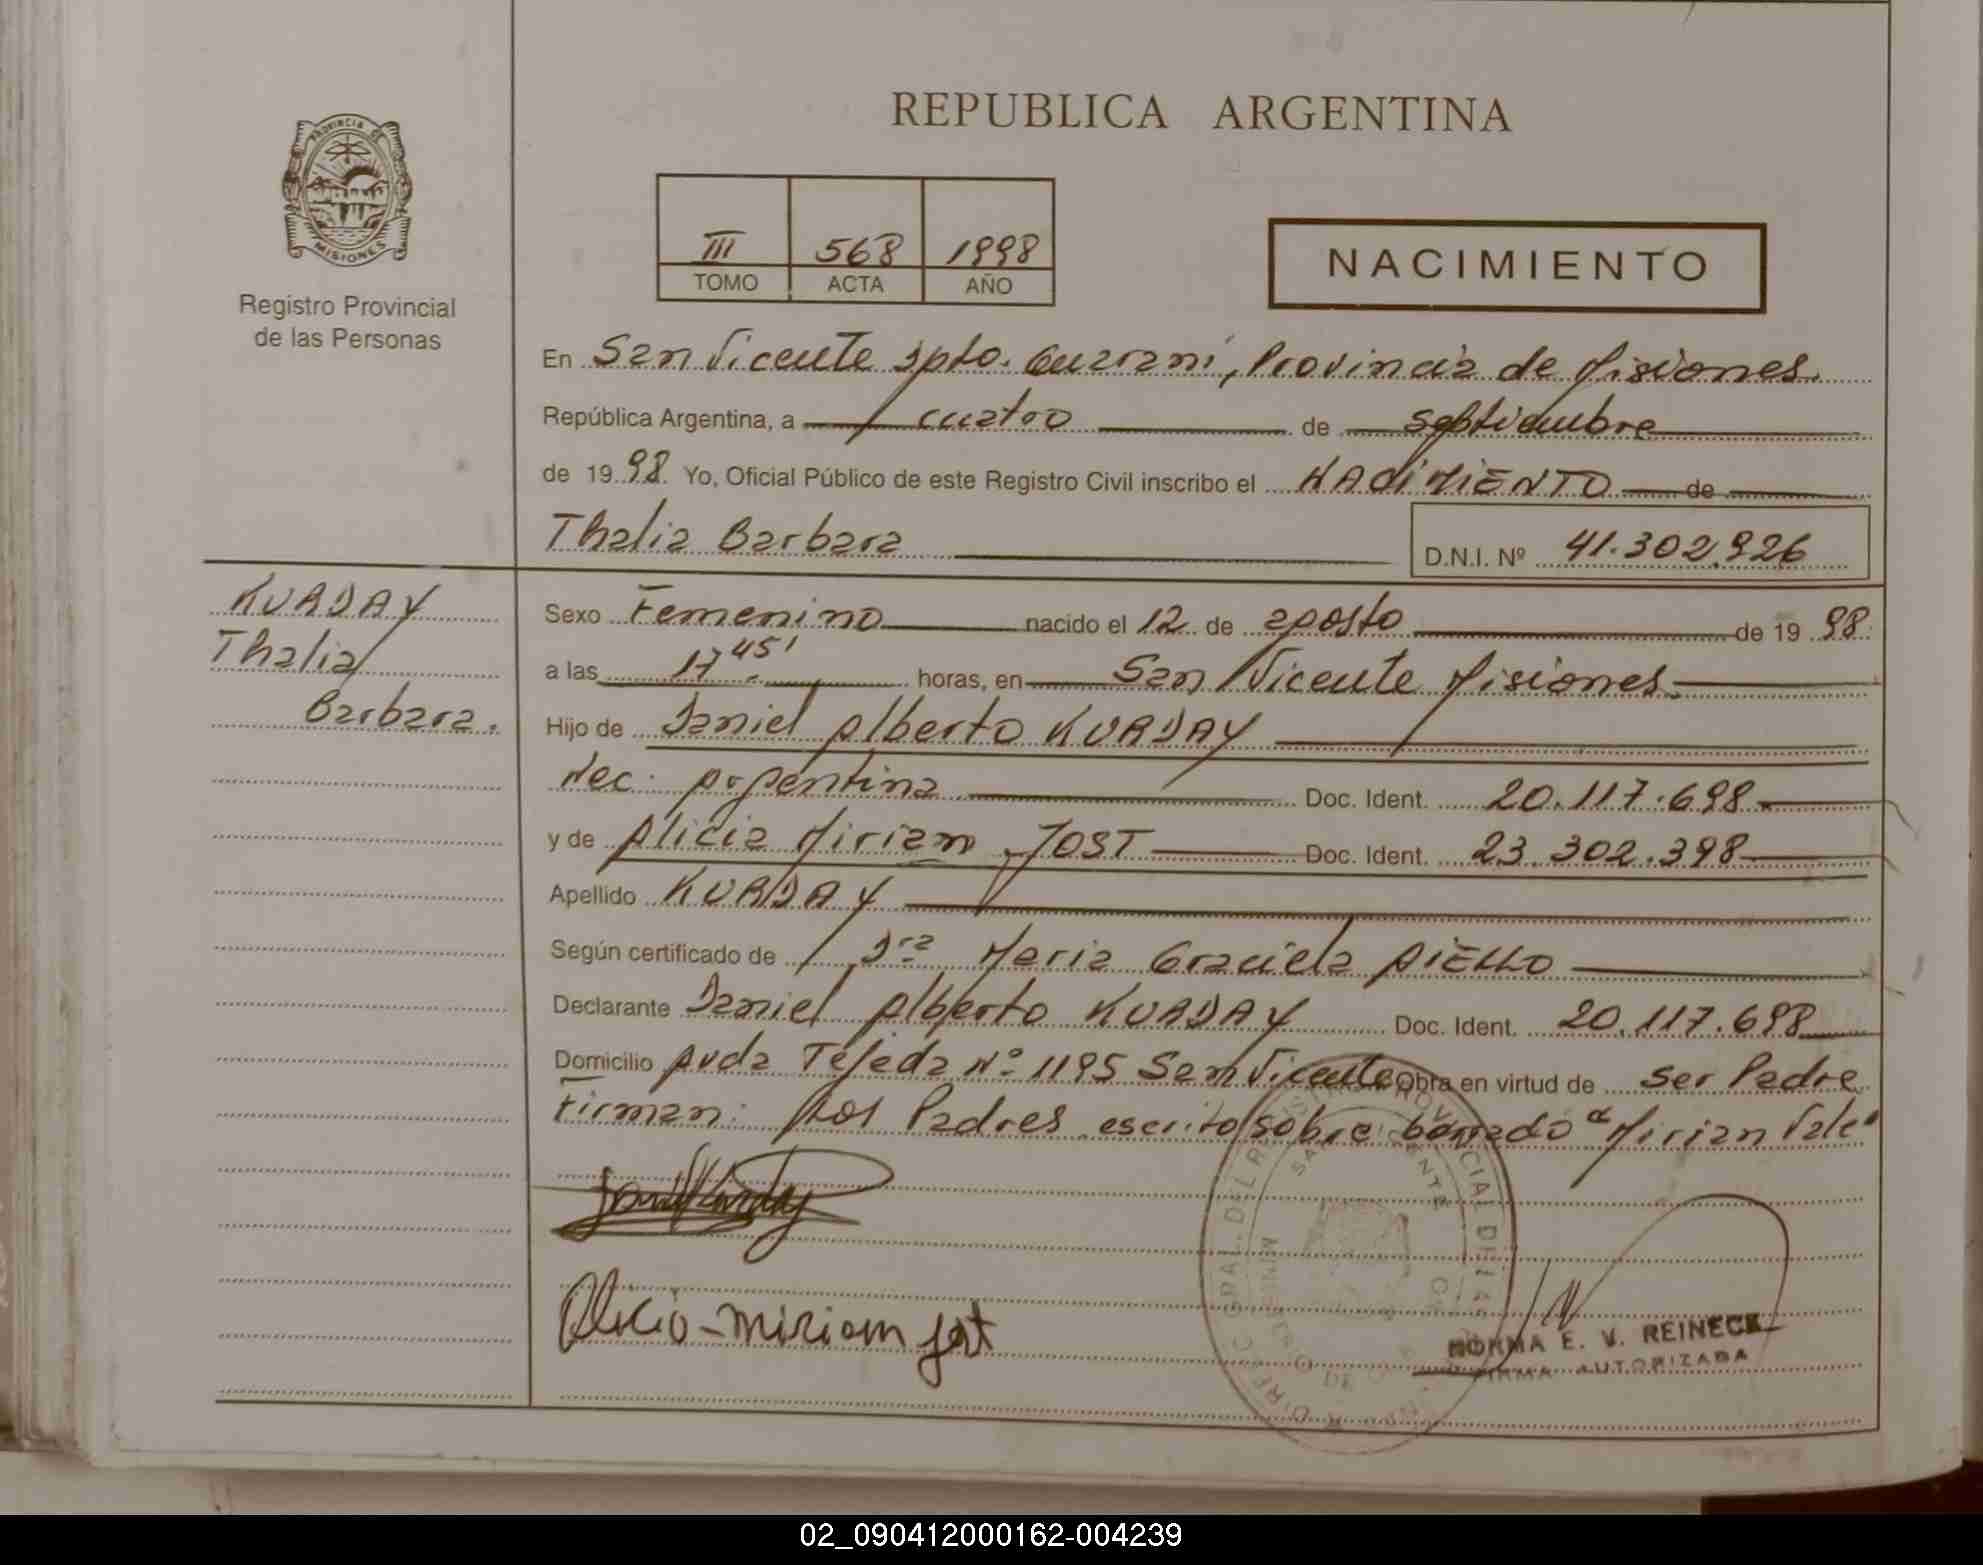 REPUBLICA ARGENTINA
PROVINCIA DE
MISIONES
Registro Provincial
de las Personas
III 568 1998
TOMO ACTA AÑO
NACIMIENTO
En San Vicente Dpto. Guaraní, Provincia de Misiones.
República Argentina, a cuatro de septiembre
de 1998 Yo, Oficial Público de este Registro Civil inscribo el NACIMIENTO de
Thalia Barbara
D.N.I. Nº 41.302.926
KURDAY
Thalia
Barbara.
Sexo Femenino nacido el 12 de agosto de 1998
a las 17 45' horas, en San Vicente Misiones.
Hijo de Daniel Alberto KURDAY
Nac. Argentina Doc. Ident. 20.117.698
y de Alicia Miriam JOST Doc. Ident. 23.302.398
Apellido KURDAY
Según certificado de Dra Maria Graciela AIELLO
Declarante Daniel Alberto KURDAY Doc. Ident. 20.117.698
Domicilio Avda Tejeda Nº 1195 San Vicente Obra en virtud de ser Padre
Firman: Los Padres escrito sobre borrado "Mirian Vale"
Alicia-Miriam Jost
NORMA E. V. REINECK
FIRMA AUTORIZADA
02_090412000162-004239